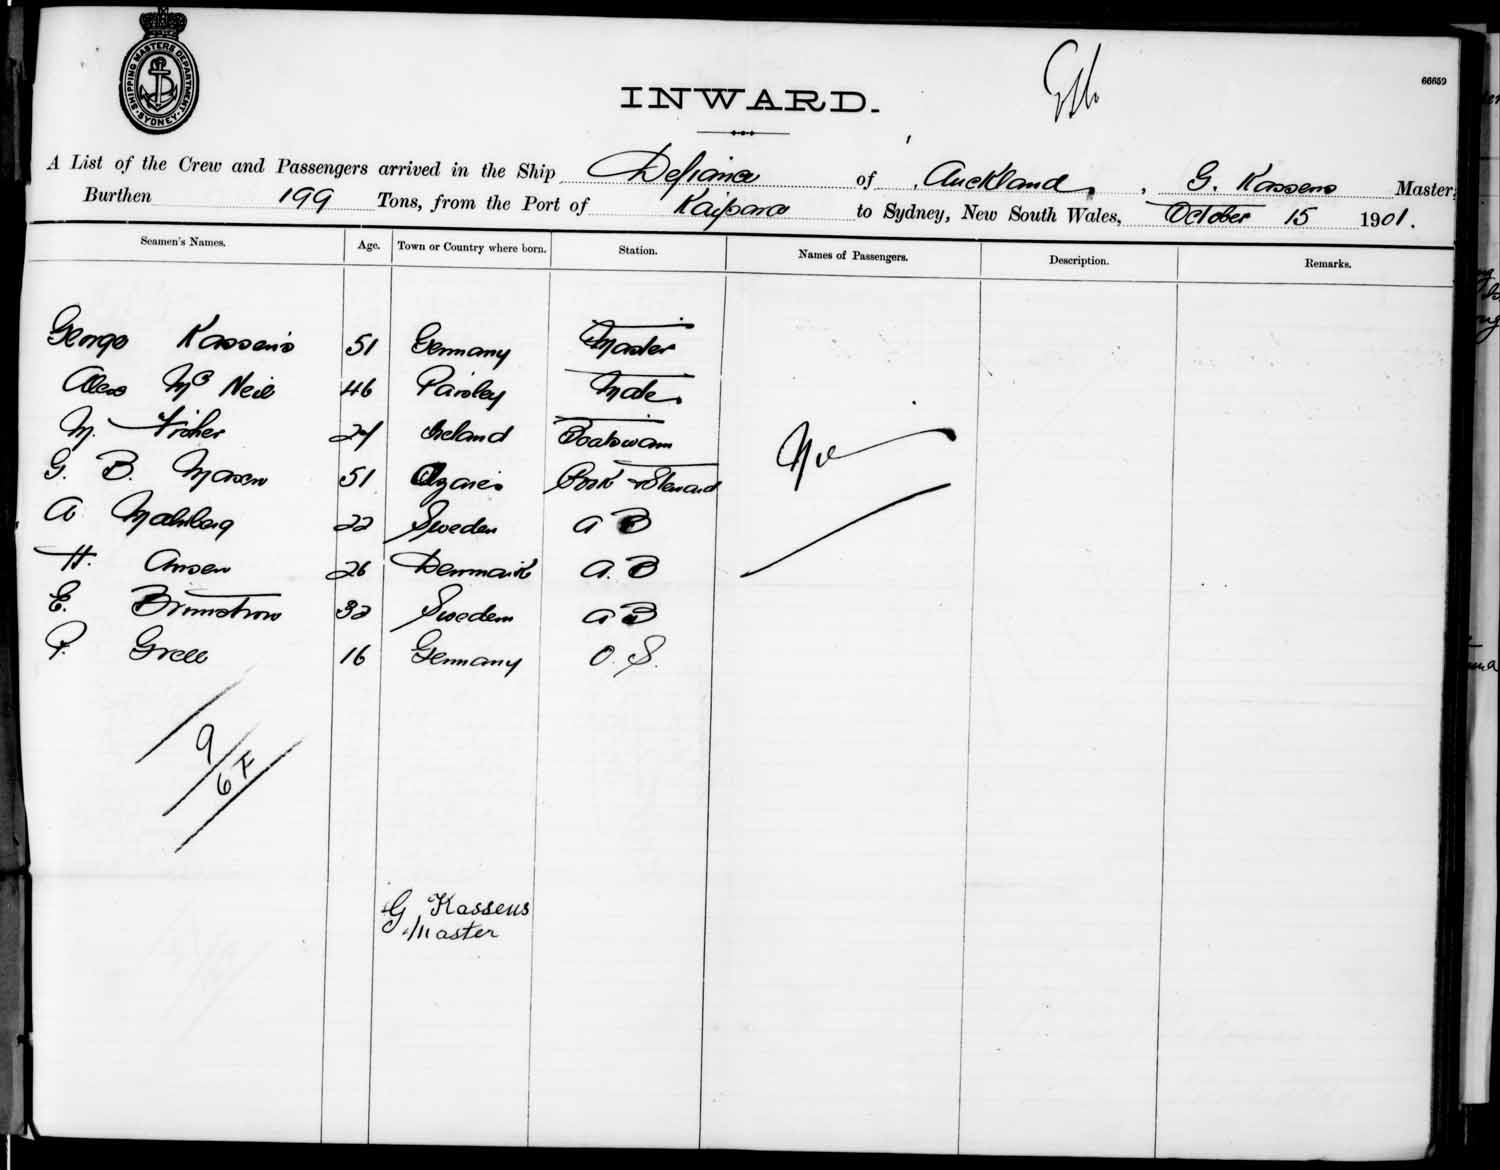 SHIPPING MASTERS DEPARTMENT
SYDNEY
66659
INWARD.
A List of the Crew and Passengers arrived in the Ship Defiance of Auckland, G. Kassens Master,
Burthen 199 Tons, from the Port of Kaipara to Sydney, New South Wales, October 15 1901.
Seamen's Names. Age. Town or Country where born. Station. Names of Passengers. Description. Remarks.
George Kassens 51 Germany Master
Alex McNeil 46 Paisley Mate
M. Fisher 24 Ireland Boatswain
G. B. Mason 51 Cook & Steward
A Malmberg 22 Sweden A B
H. Ansen 26 Denmark A. B
E. 32 Sweden A B
P. Grell 16 Germany O. S.
Nil
9
6 F
G Kassens
Master